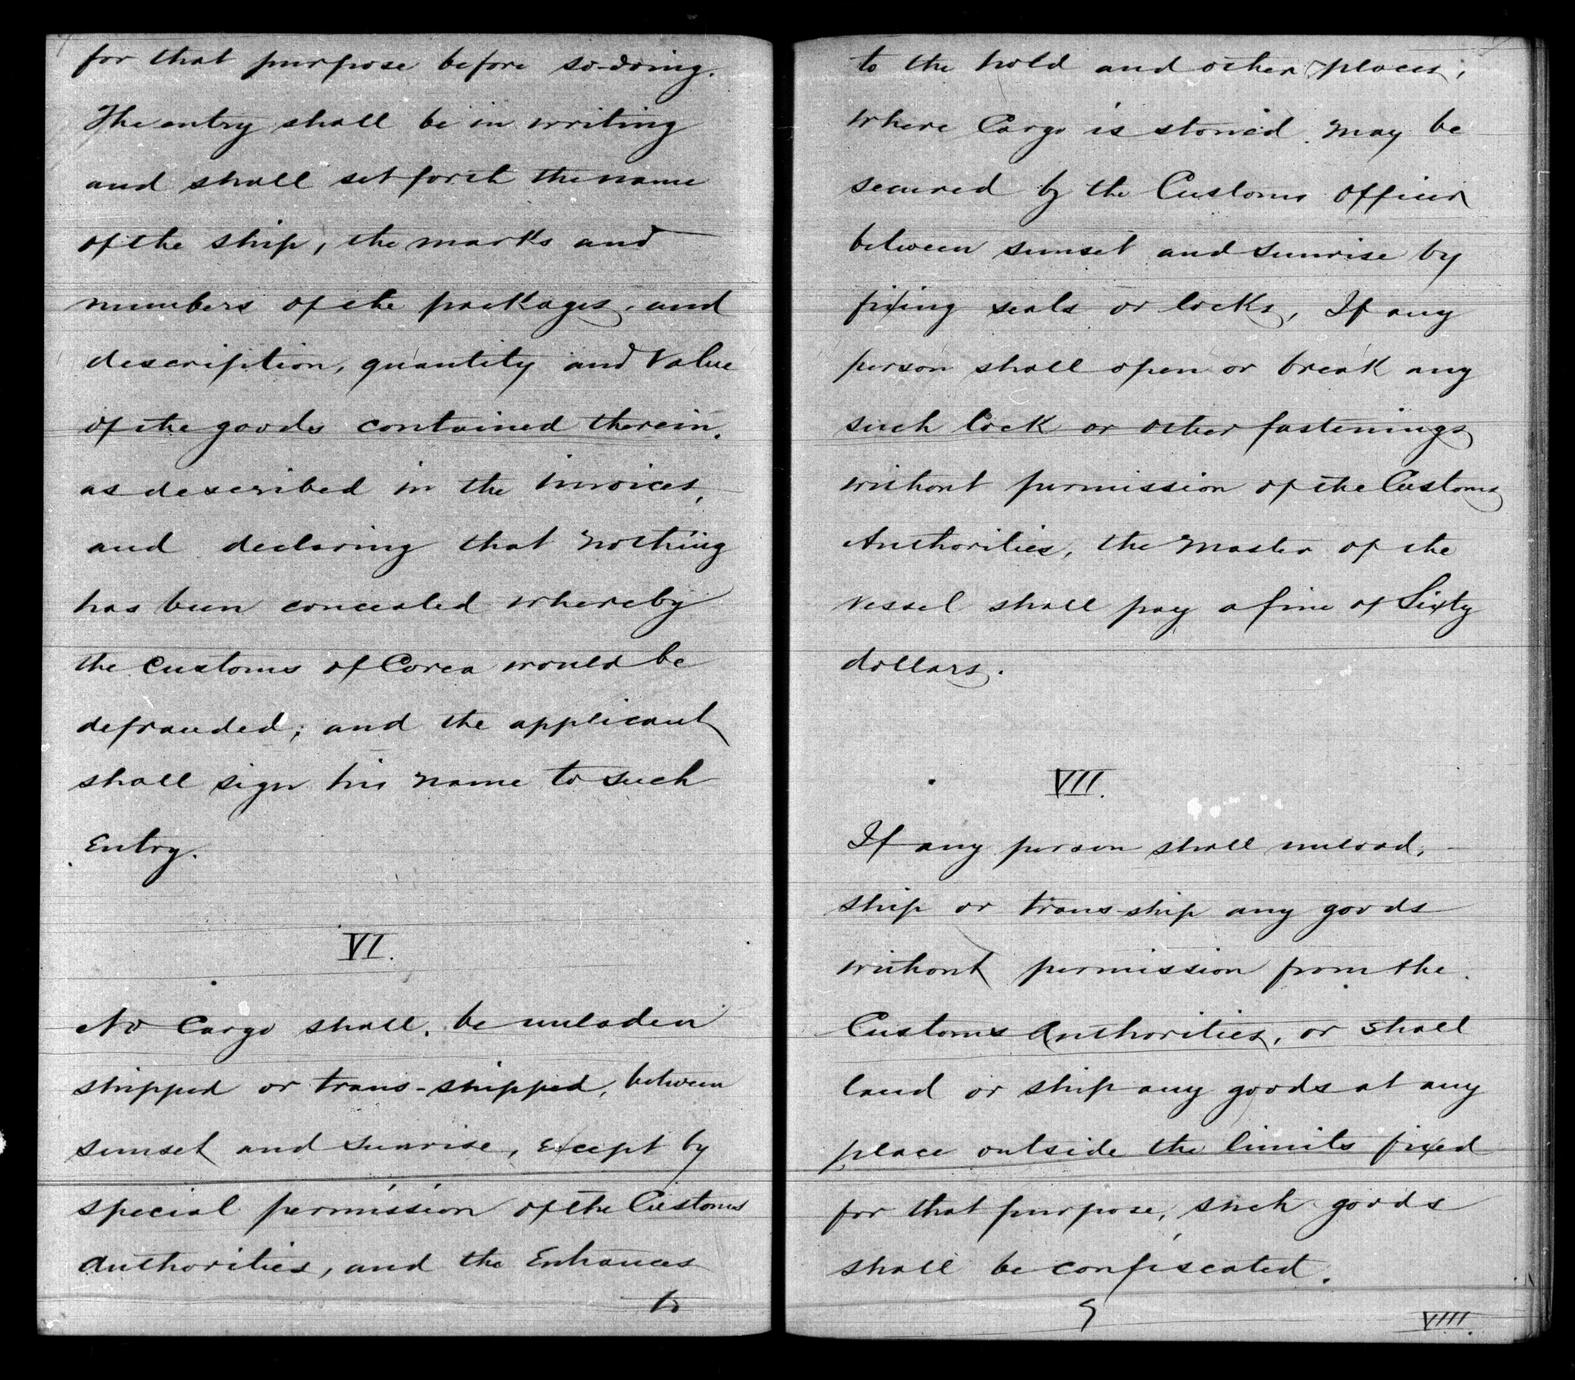 for that purpose before so-doing.
The entry shall be in writing
and shall set forth the name
of the ship, the marks and
numbers of the packages, and
description, quantity and value
of the goods contained therein.
as described in the invoices,
and declaring that nothing
has been concealed whereby
the customs of Corea would be
defrauded; and the applicant
shall sign his name to such
Entry.
VI.
No Cargo shall. be unladen
shipped or trans-shipped, between
sunset and sunrise, except by
special permission of the Customs
Authorities, and the Enhances
to
to the hold and other places,
where Cargo is stowed may be
secured by the Customs Officer
between sunset and sunrise by
fixing seals or locks, If any
person shall open or break any
such lock or other fastenings
without permission of the Customs
Authorities, the Master of the
vessel shall pay a fine of Sixty
dollars.
VII.
If any person shall unload,
ship or trans-ship any goods
without permission from the
Customs Authorities, or shall
land or ship any goods at any
place outside the limits fixed
for that purpose, such goods
shall be confiscated.
9
VIII.